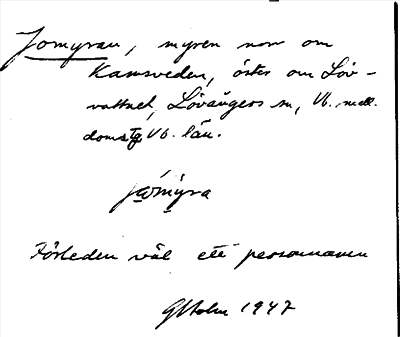 Jomyran, myren norr om
Kamsveden, öster om Löv-
vattnet, Lövångers sn, Vb. medl.
domstg Vb. län.
jòmýra
Förleden väl ett personnamn
GHolm 1947